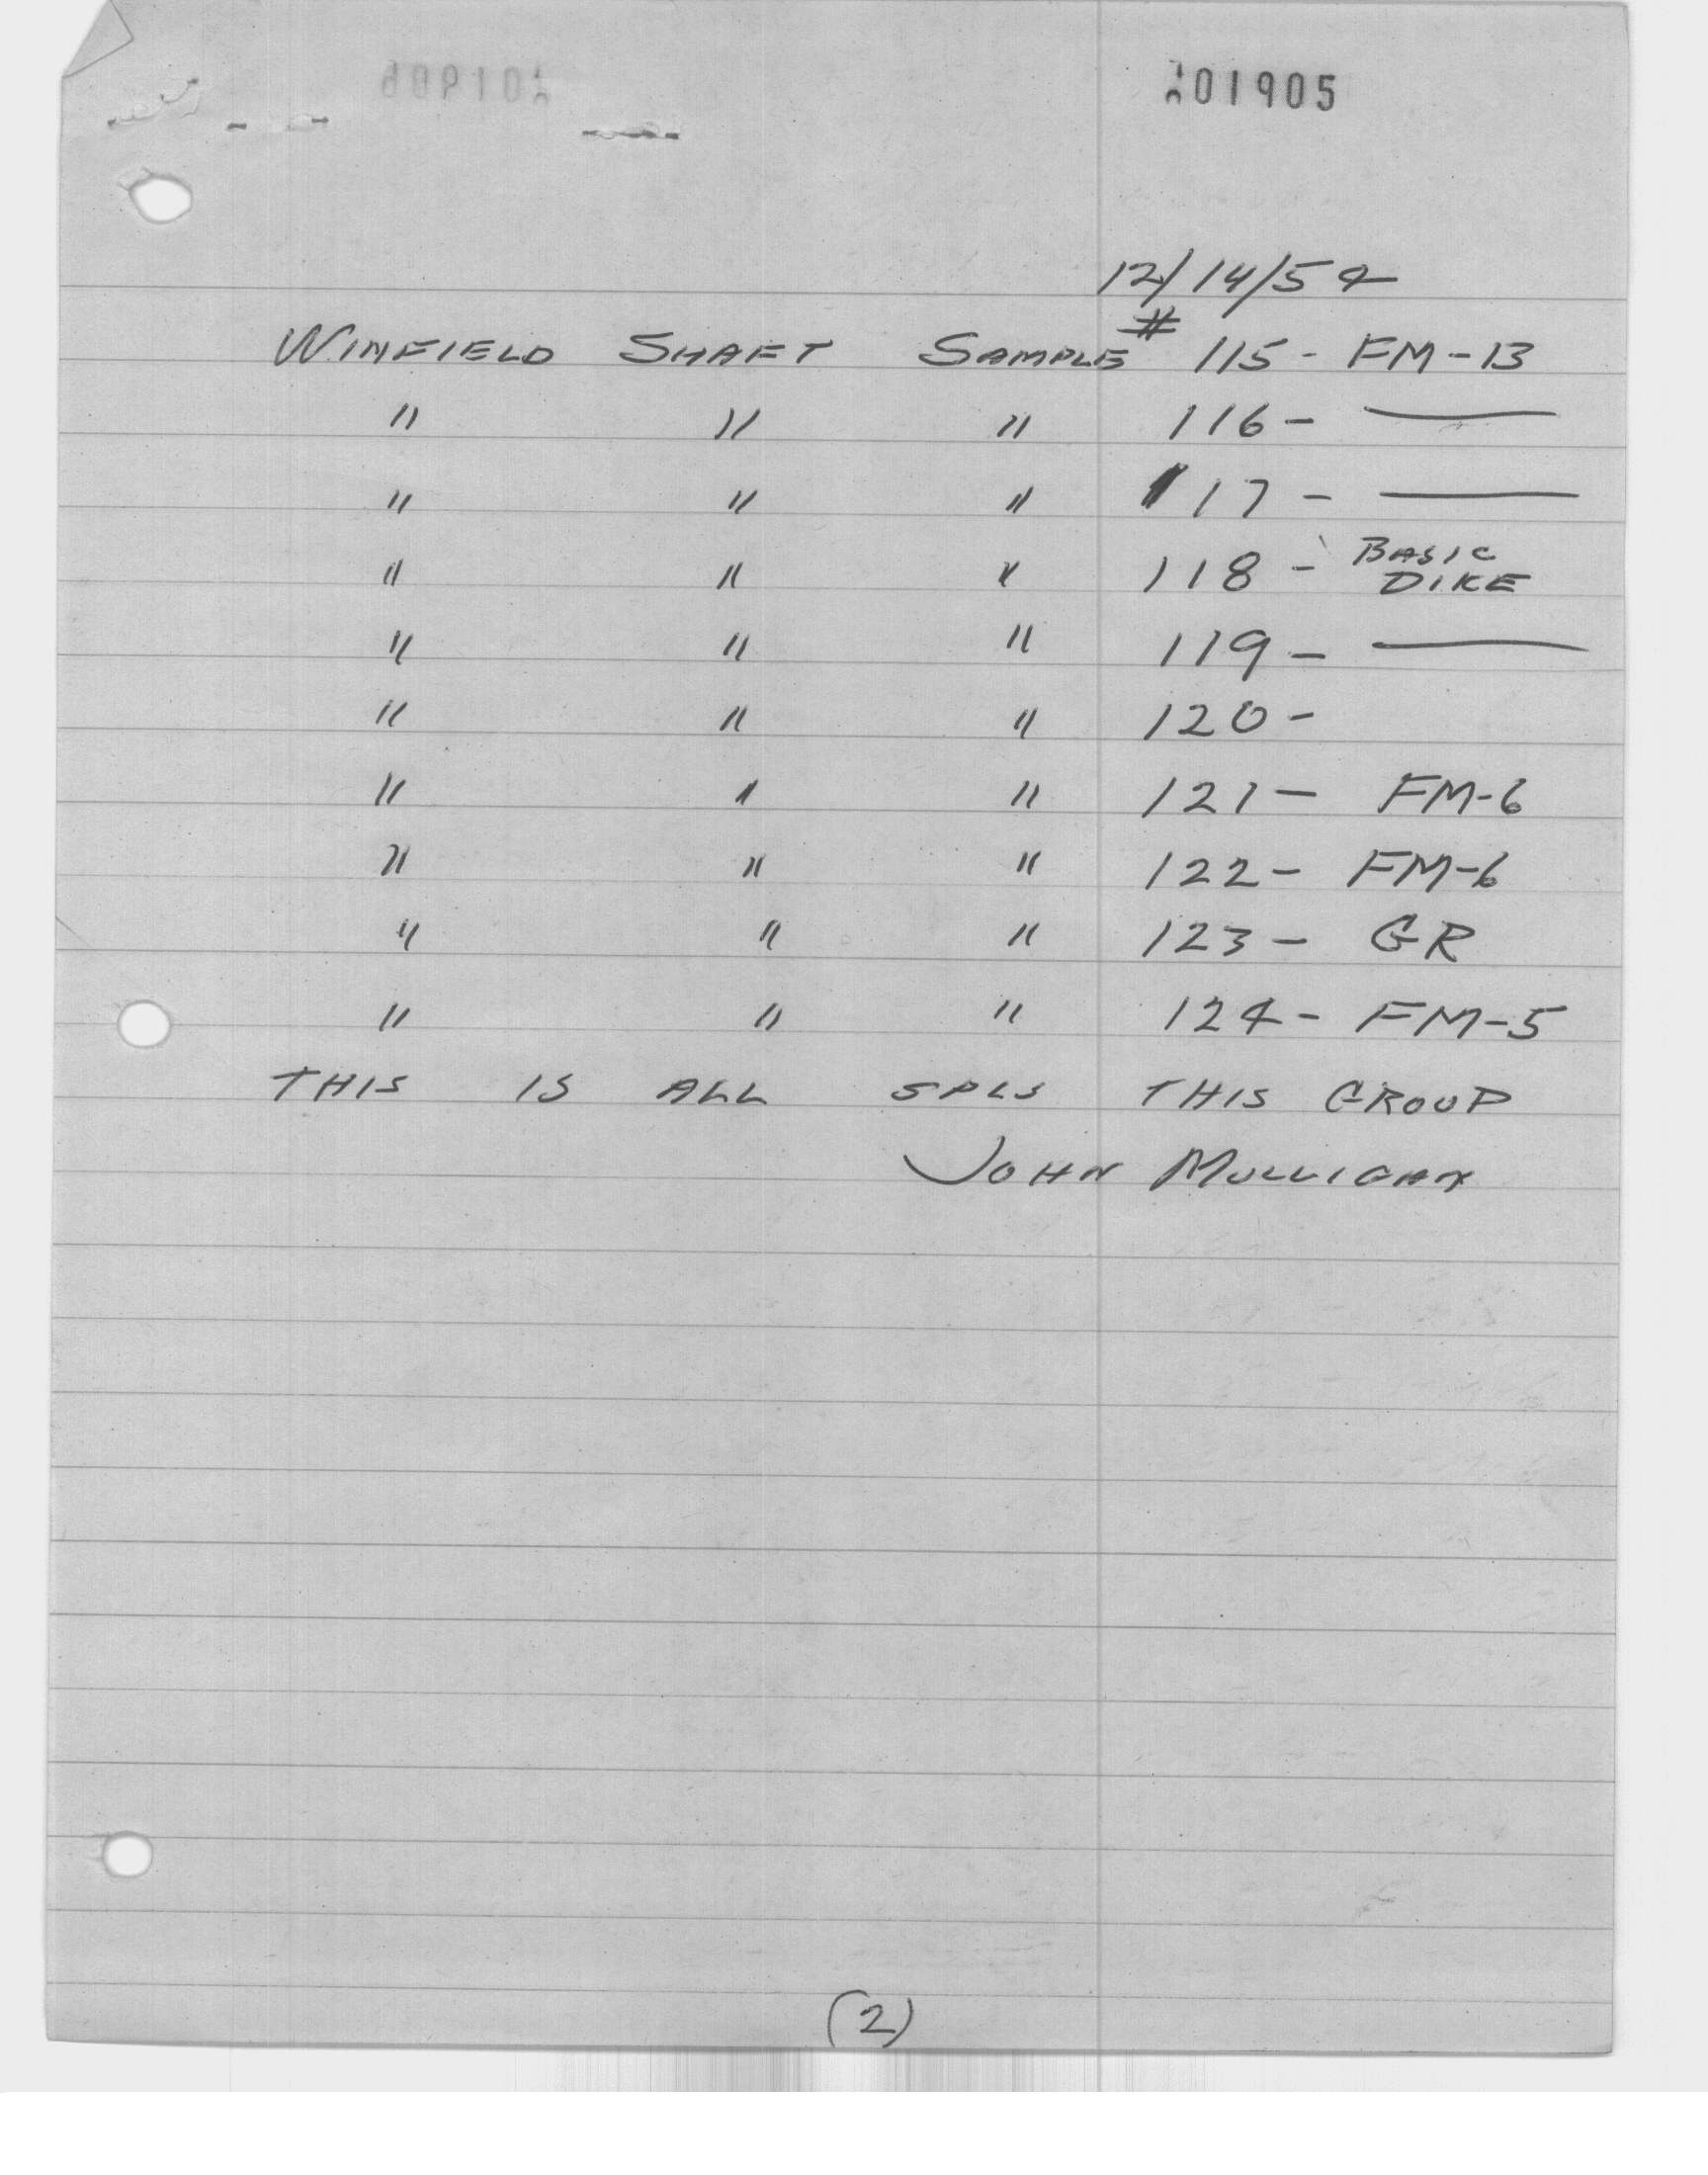 01905
12/14/54
WINFIELD SHAFT SAMPLE # 115 - FM-13
" " " 116 - —
" " " 117 - —
" " " 118 - BASIC DIKE
" " " 119 - —
" " " 120 -
" " " 121 - FM-6
" " " 122 - FM-6
" " " 123 - GR
" " " 124 - FM-5
THIS IS ALL SPLS THIS GROUP
JOHN MULLIGAN
(2)